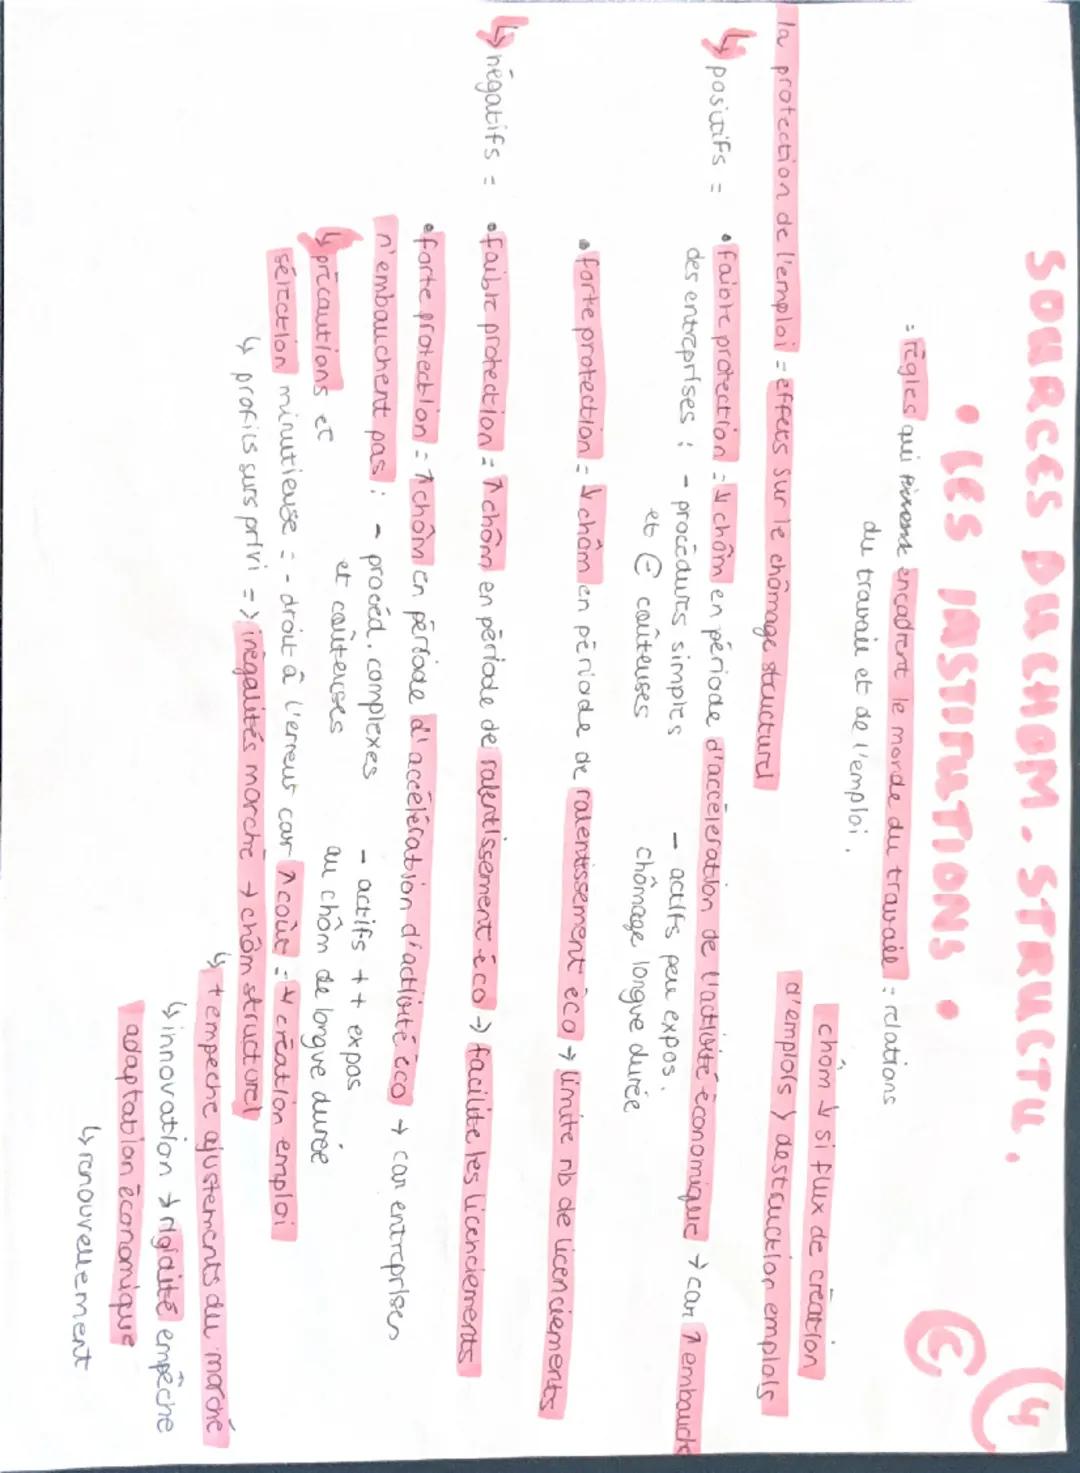 SOURCES DU CHOM. STRUCTU.
4
• LES INSTITUTIONS •
C
= règles qui encadrent le monde du travail = relations
du travail et de l'emploi.
chôm ↓ si flux de création
d'emplois > destruction emplois
la protection de l'emploi = effets sur le chômage structurel
↳ positifs = • faible protection = ↓ chôm en période d'accélération de l'activité économique → car ↑ embauche
des entreprises : - procédures simples - actifs peu expos.
et € coûteuses chômage longue durée
• forte protection = ↓ chôm en période de ralentissement éco → limite nb de licenciements
↳ négatifs = • faible protection = ↑ chôm en période de ralentissement éco → facilite les licenciements
• forte protection = ↑ chôm en période d'accélération d'activité éco → car entreprises
n'embauchent pas : - procéd. complexes - actifs ++ expos
et coûteuses au chôm de longue durée
↳ précautions et
sélection minutieuse = - droit à l'erreur car ↑ coût = ↓ création emploi
↳ profils surs privi => inégalités marché → chôm structurel
↳ + empeche ajustements du marché
↳ innovation → rigidité empêche
adaptation économique
↳ renouvellement